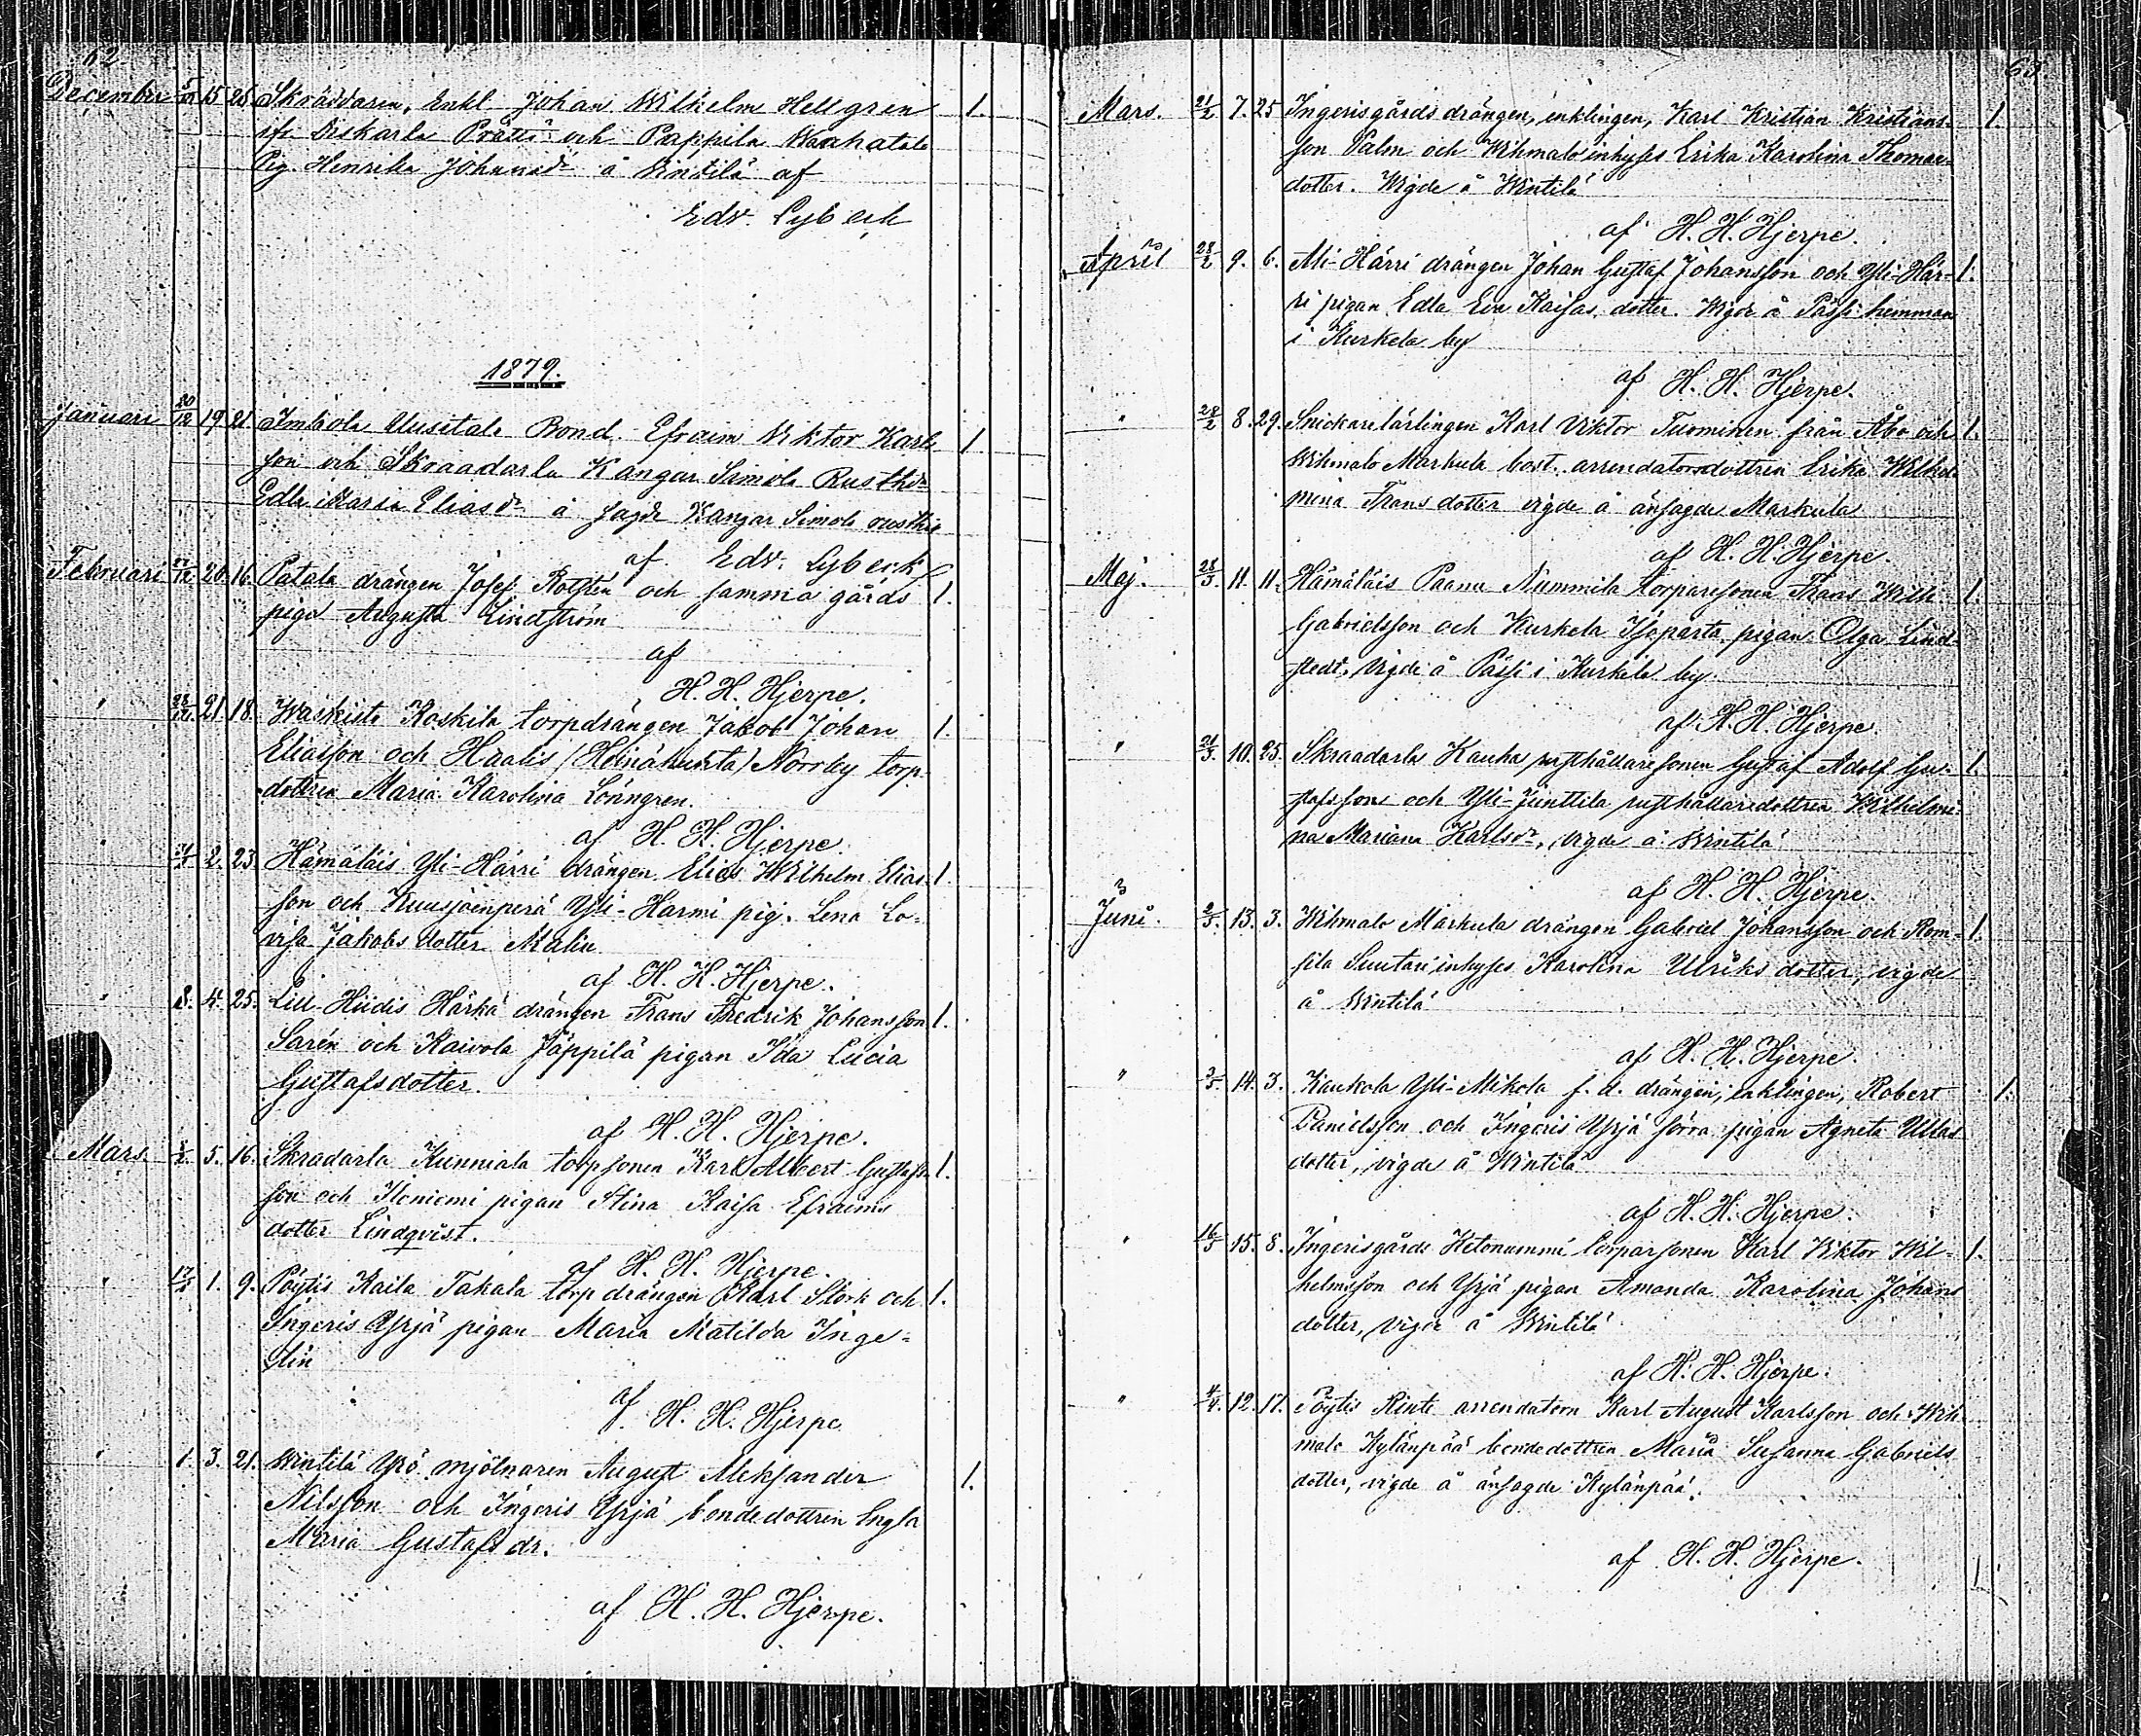 62
December 5/11 15 26 Skräddaren, Enkl Johan Wilhelm Hellgren 1.
ifr Diskarla Prätti och Pappila Wanhatalo
Pig. Henrika Johansdr å Vintilä af
Edv. Lybeck
1879.
Januari 20/12 19 21 Imbola Uusitalo Bond. Efraim Viktor Karls- 1.
son och Skraadarla Kangar Simola Rusth:
Edla Maria Eliasdr å sagde Kangar Simola rusthåll
af Edv. Lybeck
Februari 20 16. Patala drängen Josef Rotstén och samma gårds 1.
piga Augusta Lindström
af
H. H. Hjerpe.
" 21 18. Waskista Koskila torpdrängen Jakob Johan 1.
Eliasson och Haalis (Heinähuhta) Norrby torp-
dottren Maria Karolina Lönngren.
af H. H. Hjerpe.
" 2. 23. Hämäläis Yli-Härri drängen Elias Wilhelm Elias- 1.
son och Kuusjoenperä Yli-Harmi pig. Lena Lo-
visa Jakobsdotter Malin
af H. H. Hjerpe.
" 8. 4. 25. Lill-Hiidis Härkä drängen Frans Fredrik Johansson 1.
Sarén och Kaivola Jäppilä pigan Ida Lucia
Gustafsdotter.
af H. H. Hjerpe.
Mars. 5. 16. Skradarla Kunniala torpsonen Karl Albert Gustafs- 1.
son och Isoniemi pigan Stina Kaisa Efraims
dotter Lindqvist.
af H. H. Hjerpe.
" 17/2 1. 9. Pöytis Kaila Takala torpdrängen Karl Störk och 1.
Ingeris Yrjä pigan Maria Matilda Inge-
lin
af
H. H. Hjerpe
" 1. 3. 21. Wintilä Yrö mjölnaren August Aleksander 1.
Nilsson och Ingeris Yrjä bondedottren Engla
Maria Gustafsdr.
af H. H. Hjerpe.
63
Mars. 21/2 7. 25 Ingerisgårds drängen, enklingen, Karl Kristian Kristians- 1.
son Palm och Wihmalo inhyses Erika Karolina Thomas-
dotter. Wigde å Wintilä
af H. H. Hjerpe.
April 28/2 9. 6. Ali-Härri drängen Johan Gustaf Johansson och Yli-Här- 1.
ri pigan Edla Eva Kaisas dotter. Wigde å Pässi hemman
i Kurkela by
af H. H. Hjerpe.
" 28/2 8. 29. Snickarelärlingen Karl Viktor Tuominen från Åbo och 1.
Wihmalo Markula bost. arrendatorsdottren Erika Wilhel-
mina Fransdotter vigde å ansagde Markula
af H. H. Hjerpe.
Maj. 28/3. 11. 11. Hämäläis Paanu Nummila torparesonen Frans Wilh. 1.
Gabrielsson och Kurkela Isoparta pigan Olga Lind-
stedt. Vigde å Pässi i Kurkela by.
af H. H. Hjerpe.
" 21/3. 10. 25. Skraadarla Kauha rusthållaresonen Gustaf Adolf Gu- 1.
stafsson och Yli-Junttila rusthållaredottren Wilhelmi-
na Mariana Karlsdr, vigde å Wintilä
af H. H. Hjerpe.
Juni. 2/5. 13. 3. Wihmalo Markula drängen Gabriel Johansson och Rom- 1.
sila Suutari inhyses Karolina Ulriksdotter, vigde
å Wintilä
af H. H. Hjerpe.
" 2/5. 14. 3. Kaukola Yli-Mikola f. d. drängen, enklingen, Robert 1.
Danielsson och Ingeris Yrjä förra pigan Agneta Ullas
dotter, vigde å Wintilä
af H. H. Hjerpe.
" 16/5 15. 8. Ingerisgårds Ketonummi torparsonen Karl Viktor Wil- 1.
helmsson och Yrjä pigan Amanda Karolina Johans
dotter, vigde å Wintilä
af H. H. Hjerpe.
" 4/4. 12. 17. Pöytis Rinta arrendatorn Karl August Karlsson och Wih-
malo Kylänpää bondedottren Maria Susanna Gabriels
dotter, vigde å ansagde Kylänpää.
af H. H. Hjerpe.